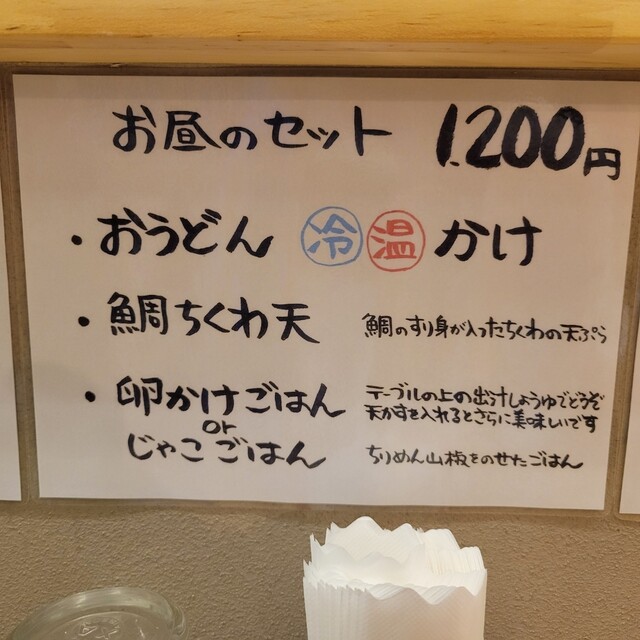 お昼のセット 1.200円
・おうどん 冷 温 かけ
・鯛ちくわ天 鯛のすり身が入ったちくわの天ぷら
・卵かけごはん テーブルの上の出汁しょうゆでどうぞ
天かすを入れるとさらに美味しいです
or
じゃこごはん ちりめん山椒をのせたごはん